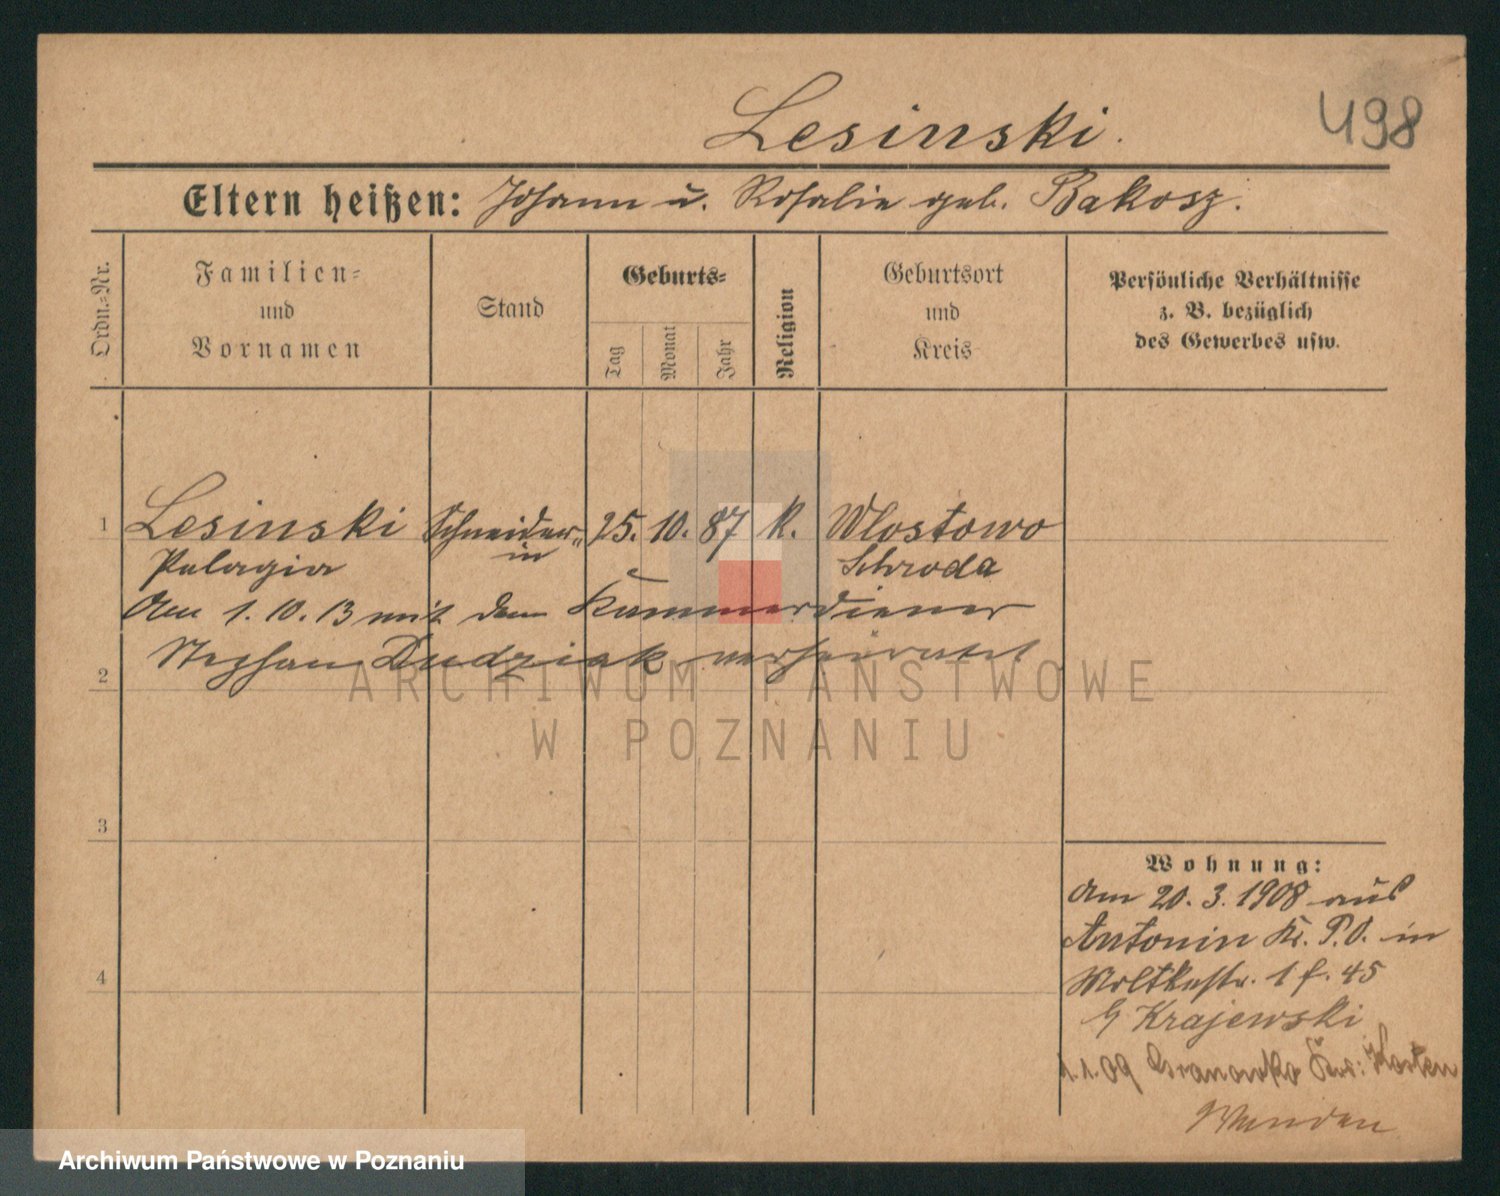 Lesinski.
498
Eltern heißen: Johann u. Rosalie geb. Bakosz.
Ordn.-Nr.
Familien-
und
Vornamen
Stand
Geburts-
Tag
Monat
Jahr
Religion
Geburtsort
und
Kreis
Persönliche Verhältnisse
z. B. bezüglich
des Gewerbes usw.
1 Lesinski Schneider- 25. 10. 87 k. Wlostowo
Pelagia in Schroda
Am 1.10.13 mit dem Kammerdiener
Stephan Dudziak verheiratet
2
3
4
Wohnung:
Am 20.3.1908 aus
Antonin Kr. P.O. in
Moltkestr. 1 f. 45
Krajewski
1.1.09 Granowko Kr: Kosten
ARCHIWUM PAŃSTWOWE
W POZNANIU
Archiwum Państwowe w Poznaniu